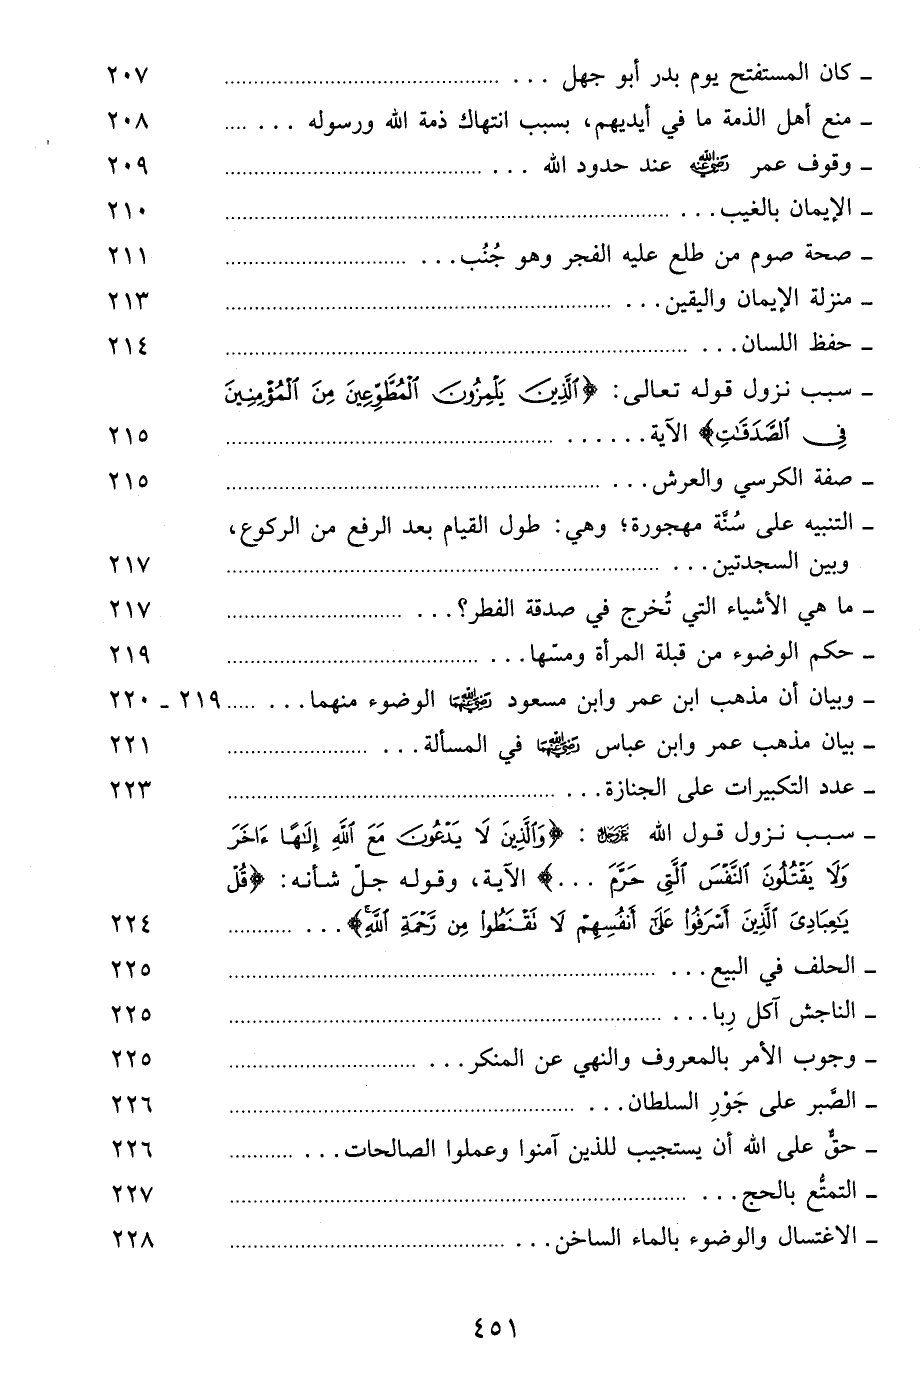 ـ كان المستفتح يوم بدر أبو جهل ... ٢٠٧
ـ منع أهل الذمة ما في أيديهم، بسبب انتهاك ذمة الله ورسوله ... ٢٠٨
ـ وقوف عمر رضي الله عنه عند حدود الله ... ٢٠٩
ـ الإيمان بالغيب... ٢١٠
ـ صحة صوم من طلع عليه الفجر وهو جُنُب... ٢١١
ـ منزلة الإيمان واليقين... ٢١٣
ـ حفظ اللسان... ٢١٤
ـ سبب نزول قوله تعالى: ﴿ٱلَّذِينَ يَلْمِزُونَ ٱلْمُطَّوِّعِينَ مِنَ ٱلْمُؤْمِنِينَ
فِى ٱلصَّدَقَٰتِ﴾ الآية...... ٢١٥
ـ صفة الكرسي والعرش... ٢١٥
ـ التنبيه على سُنَّة مهجورة؛ وهي: طول القيام بعد الرفع من الركوع،
وبين السجدتين... ٢١٧
ـ ما هي الأشياء التي تُخرج في صدقة الفطر؟... ٢١٧
ـ حكم الوضوء من قبلة المرأة ومسّها... ٢١٩
ـ وبيان أن مذهب ابن عمر وابن مسعود رضي الله عنهما الوضوء منهما... ٢١٩ ـ ٢٢٠
ـ بيان مذهب عمر وابن عباس رضي الله عنهما في المسألة... ٢٢١
ـ عدد التكبيرات على الجنازة... ٢٢٣
ـ سبب نزول قول الله عز وجل: ﴿وَٱلَّذِينَ لَا يَدْعُونَ مَعَ ٱللَّهِ إِلَٰهًا ءَاخَرَ
وَلَا يَقْتُلُونَ ٱلنَّفْسَ ٱلَّتِى حَرَّمَ ...﴾ الآية، وقوله جلّ شأنه: ﴿قُلْ
يَٰعِبَادِىَ ٱلَّذِينَ أَسْرَفُوا۟ عَلَىٰٓ أَنفُسِهِمْ لَا تَقْنَطُوا۟ مِن رَّحْمَةِ ٱللَّهِۚ﴾... ٢٢٤
ـ الحلف في البيع... ٢٢٥
ـ الناجش آكل رِبا... ٢٢٥
ـ وجوب الأمر بالمعروف والنهي عن المنكر... ٢٢٥
ـ الصَّبر على جَوْرِ السلطان... ٢٢٦
ـ حقٌّ على الله أن يستجيب للذين آمنوا وعملوا الصالحات... ٢٢٦
ـ التمتُّع بالحج... ٢٢٧
ـ الاغتسال والوضوء بالماء الساخن... ٢٢٨
٤٥١